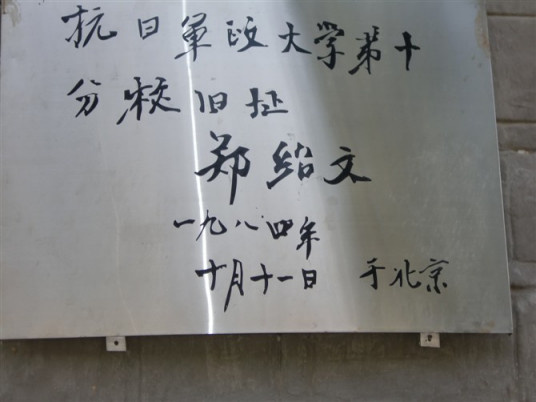 抗日军政大学第十
分校旧址
郑绍文
一九八四年
十月十一日 于北京